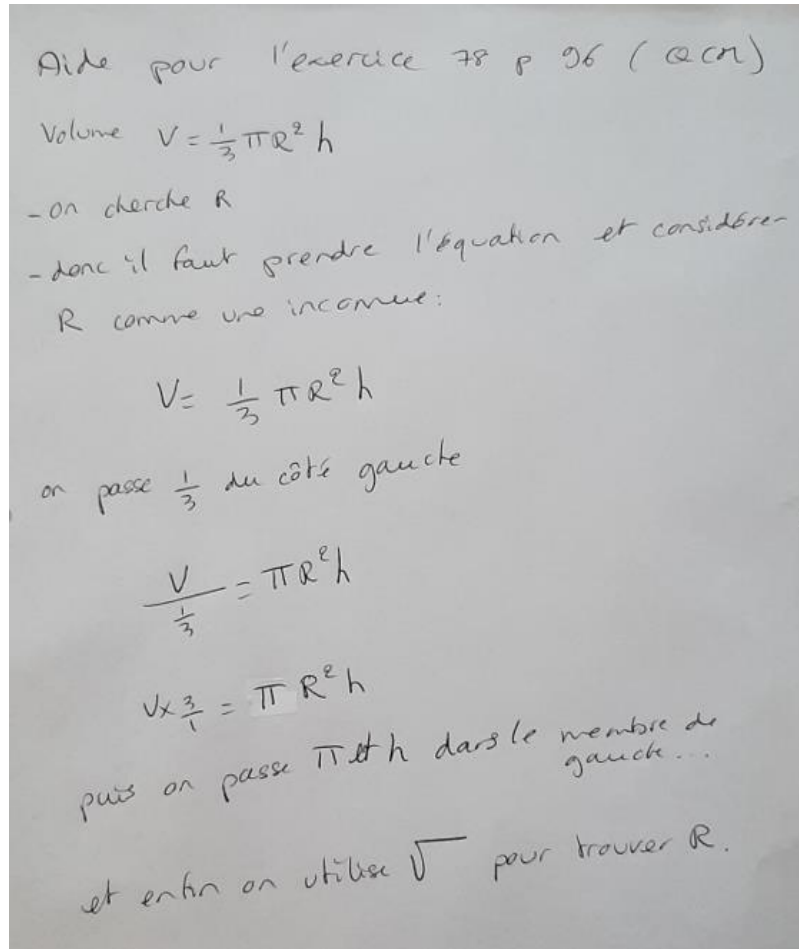 Aide pour l'exercice 78 p 96 (QCM)
Volume V = 1/3 πR² h
- on cherche R
- donc il faut prendre l'équation et considérer
R comme une inconnue :
V = 1/3 πR² h
on passe 1/3 du côté gauche
V / (1/3) = πR² h
V × 3/1 = π R² h
puis on passe π et h dans le membre de
gauche ...
et enfin on utilise √ pour trouver R.